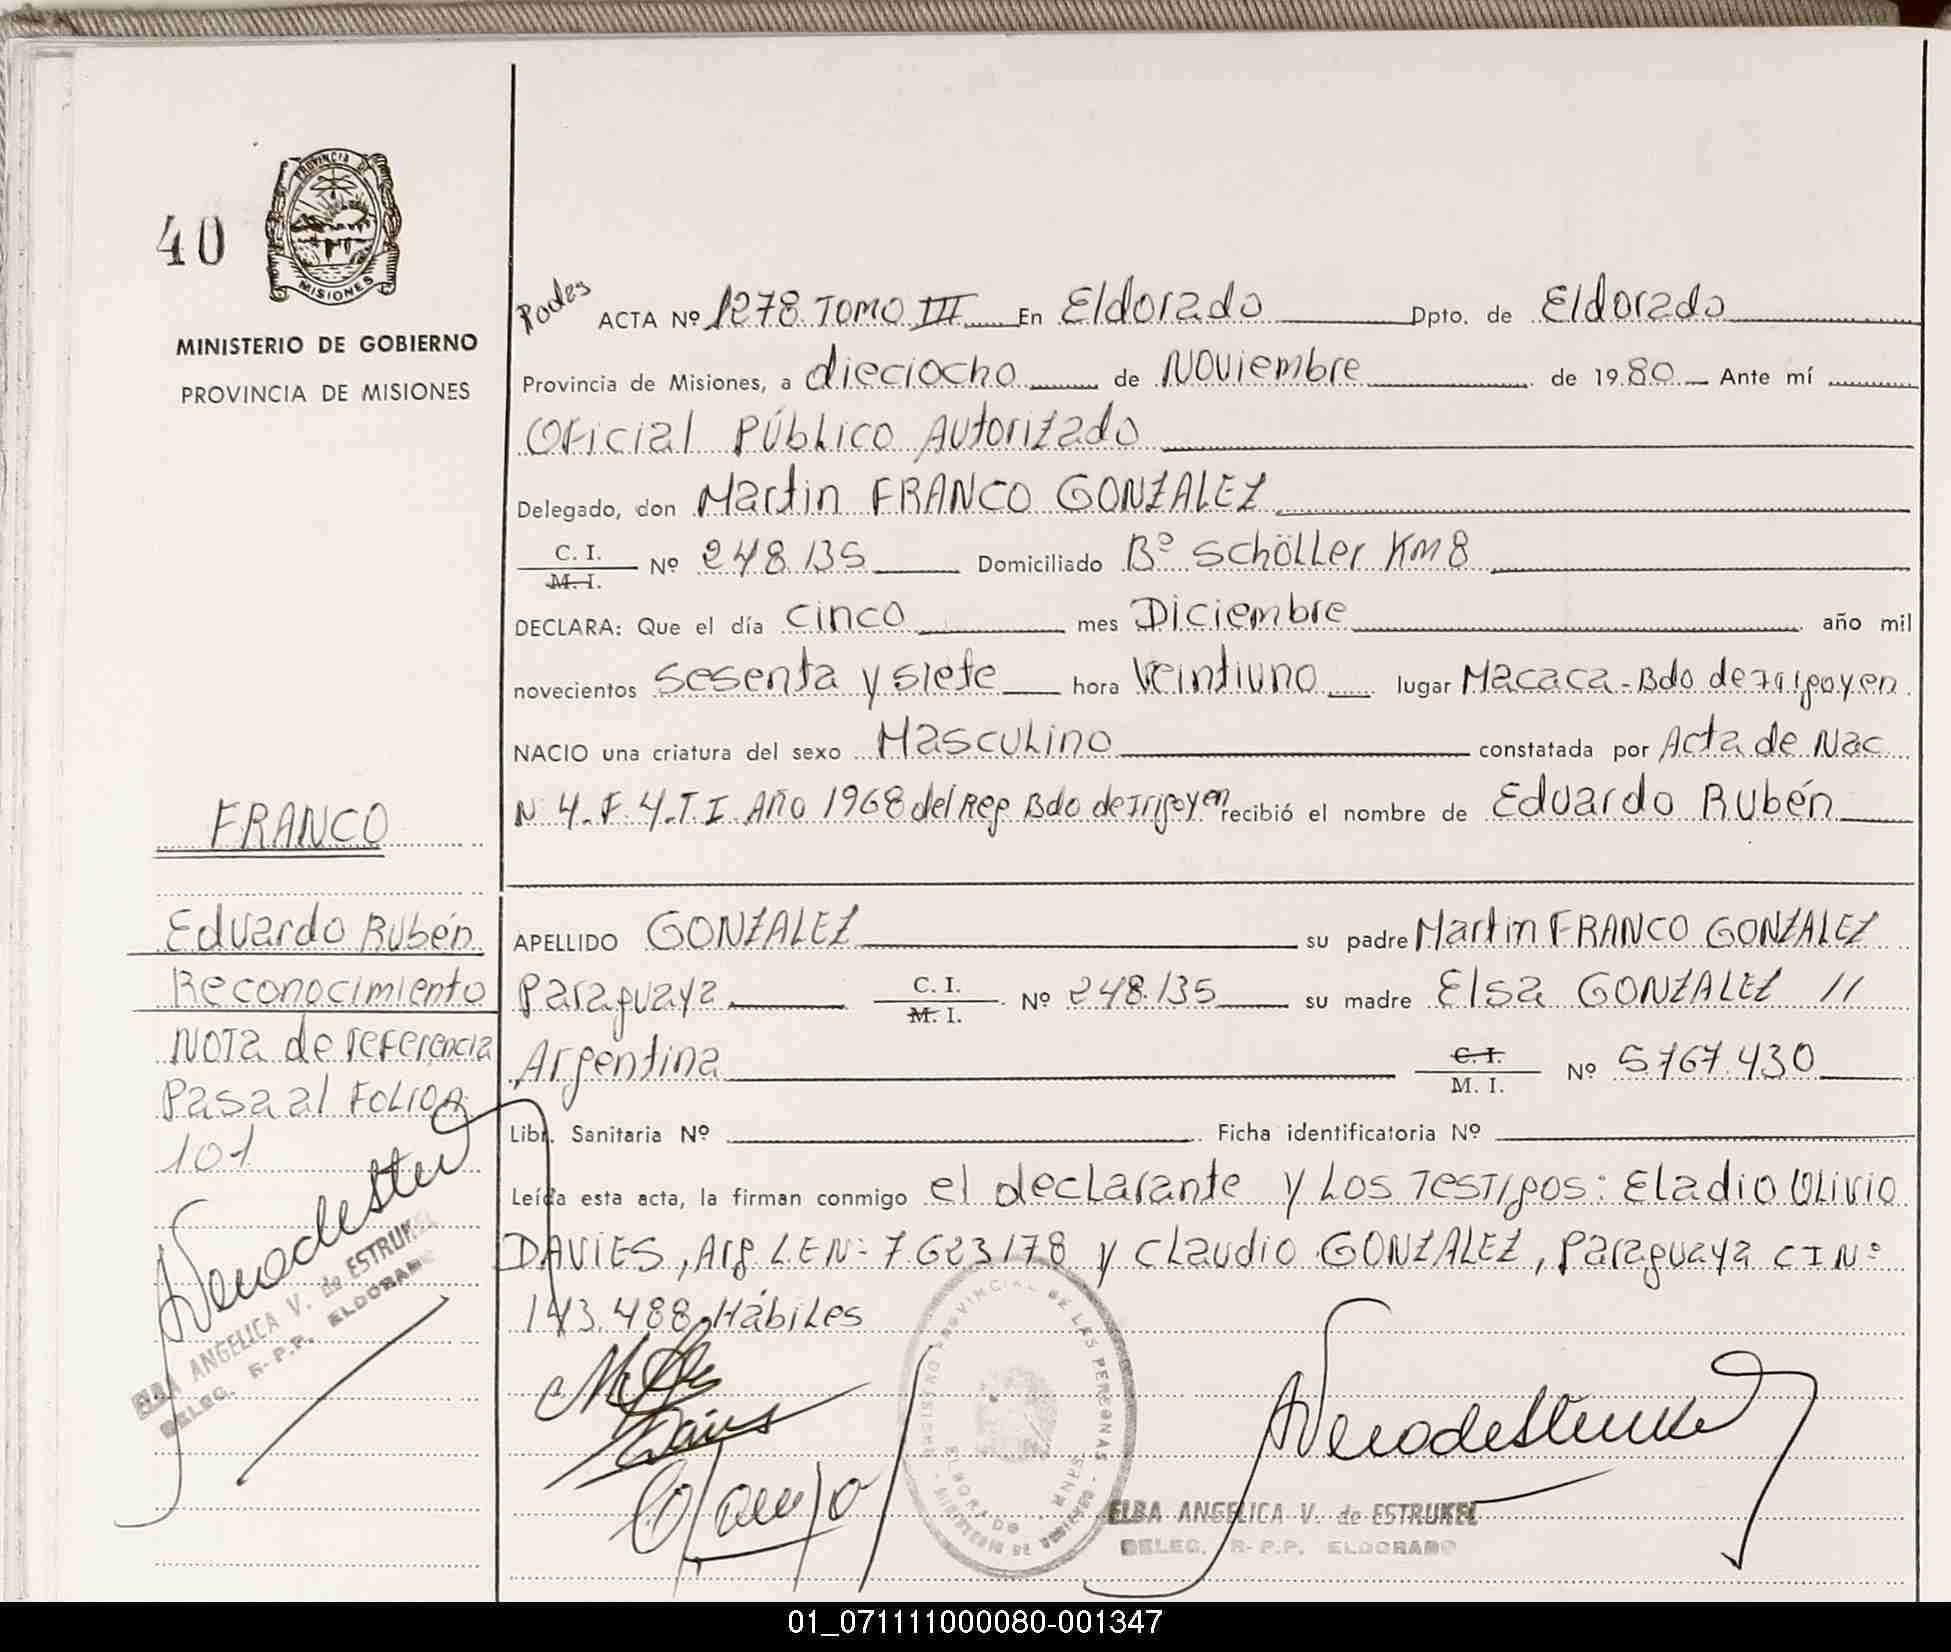 40
PROVINCIA DE
MISIONES
MINISTERIO DE GOBIERNO
PROVINCIA DE MISIONES
FRANCO
Eduardo Rubén
Reconocimiento
NOTA de referencia
Pasa al FOLIO
101
ELBA ANGELICA V. de ESTRUKEL
DELEG. R-P.P. ELDORADO
ACTA Nº 1278 TOMO III En Eldorado Dpto. de Eldorado
Provincia de Misiones, a dieciocho de Noviembre de 1980 Ante mí
Oficial Público Autorizado
Delegado, don Martin FRANCO GONZALEZ
C. I.
M. I. Nº 248.135 Domiciliado Bº Schöller KM 8
DECLARA: Que el día cinco mes Diciembre año mil
novecientos sesenta y siete hora veintiuno lugar Macaca-Bdo de Irigoyen
NACIO una criatura del sexo Masculino constatada por Acta de Nac
N 4. F. 4. T. I. Año 1968 del Rep Bdo de Irigoyen recibió el nombre de Eduardo Rubén
APELLIDO GONZALEZ su padre Martin FRANCO GONZALEZ
Paraguaya C. I.
M. I. Nº 248.135 su madre Elsa GONZALEZ //
Argentina C. I.
M. I. Nº 5767.430
Libr. Sanitaria Nº Ficha identificatoria Nº
Leída esta acta, la firman conmigo el declarante y Los Testigos: Eladio Olivio
DAVIES, Arg. L.E.Nº 7.623178 y Claudio GONZALEZ, Paraguaya C I Nº
143.488 Hábiles
REGISTRO PROVINCIAL DE LAS PERSONAS
ELDORADO - MNES.
ELBA ANGELICA V. de ESTRUKEL
DELEG. R-P.P. ELDORADO
01_071111000080-001347